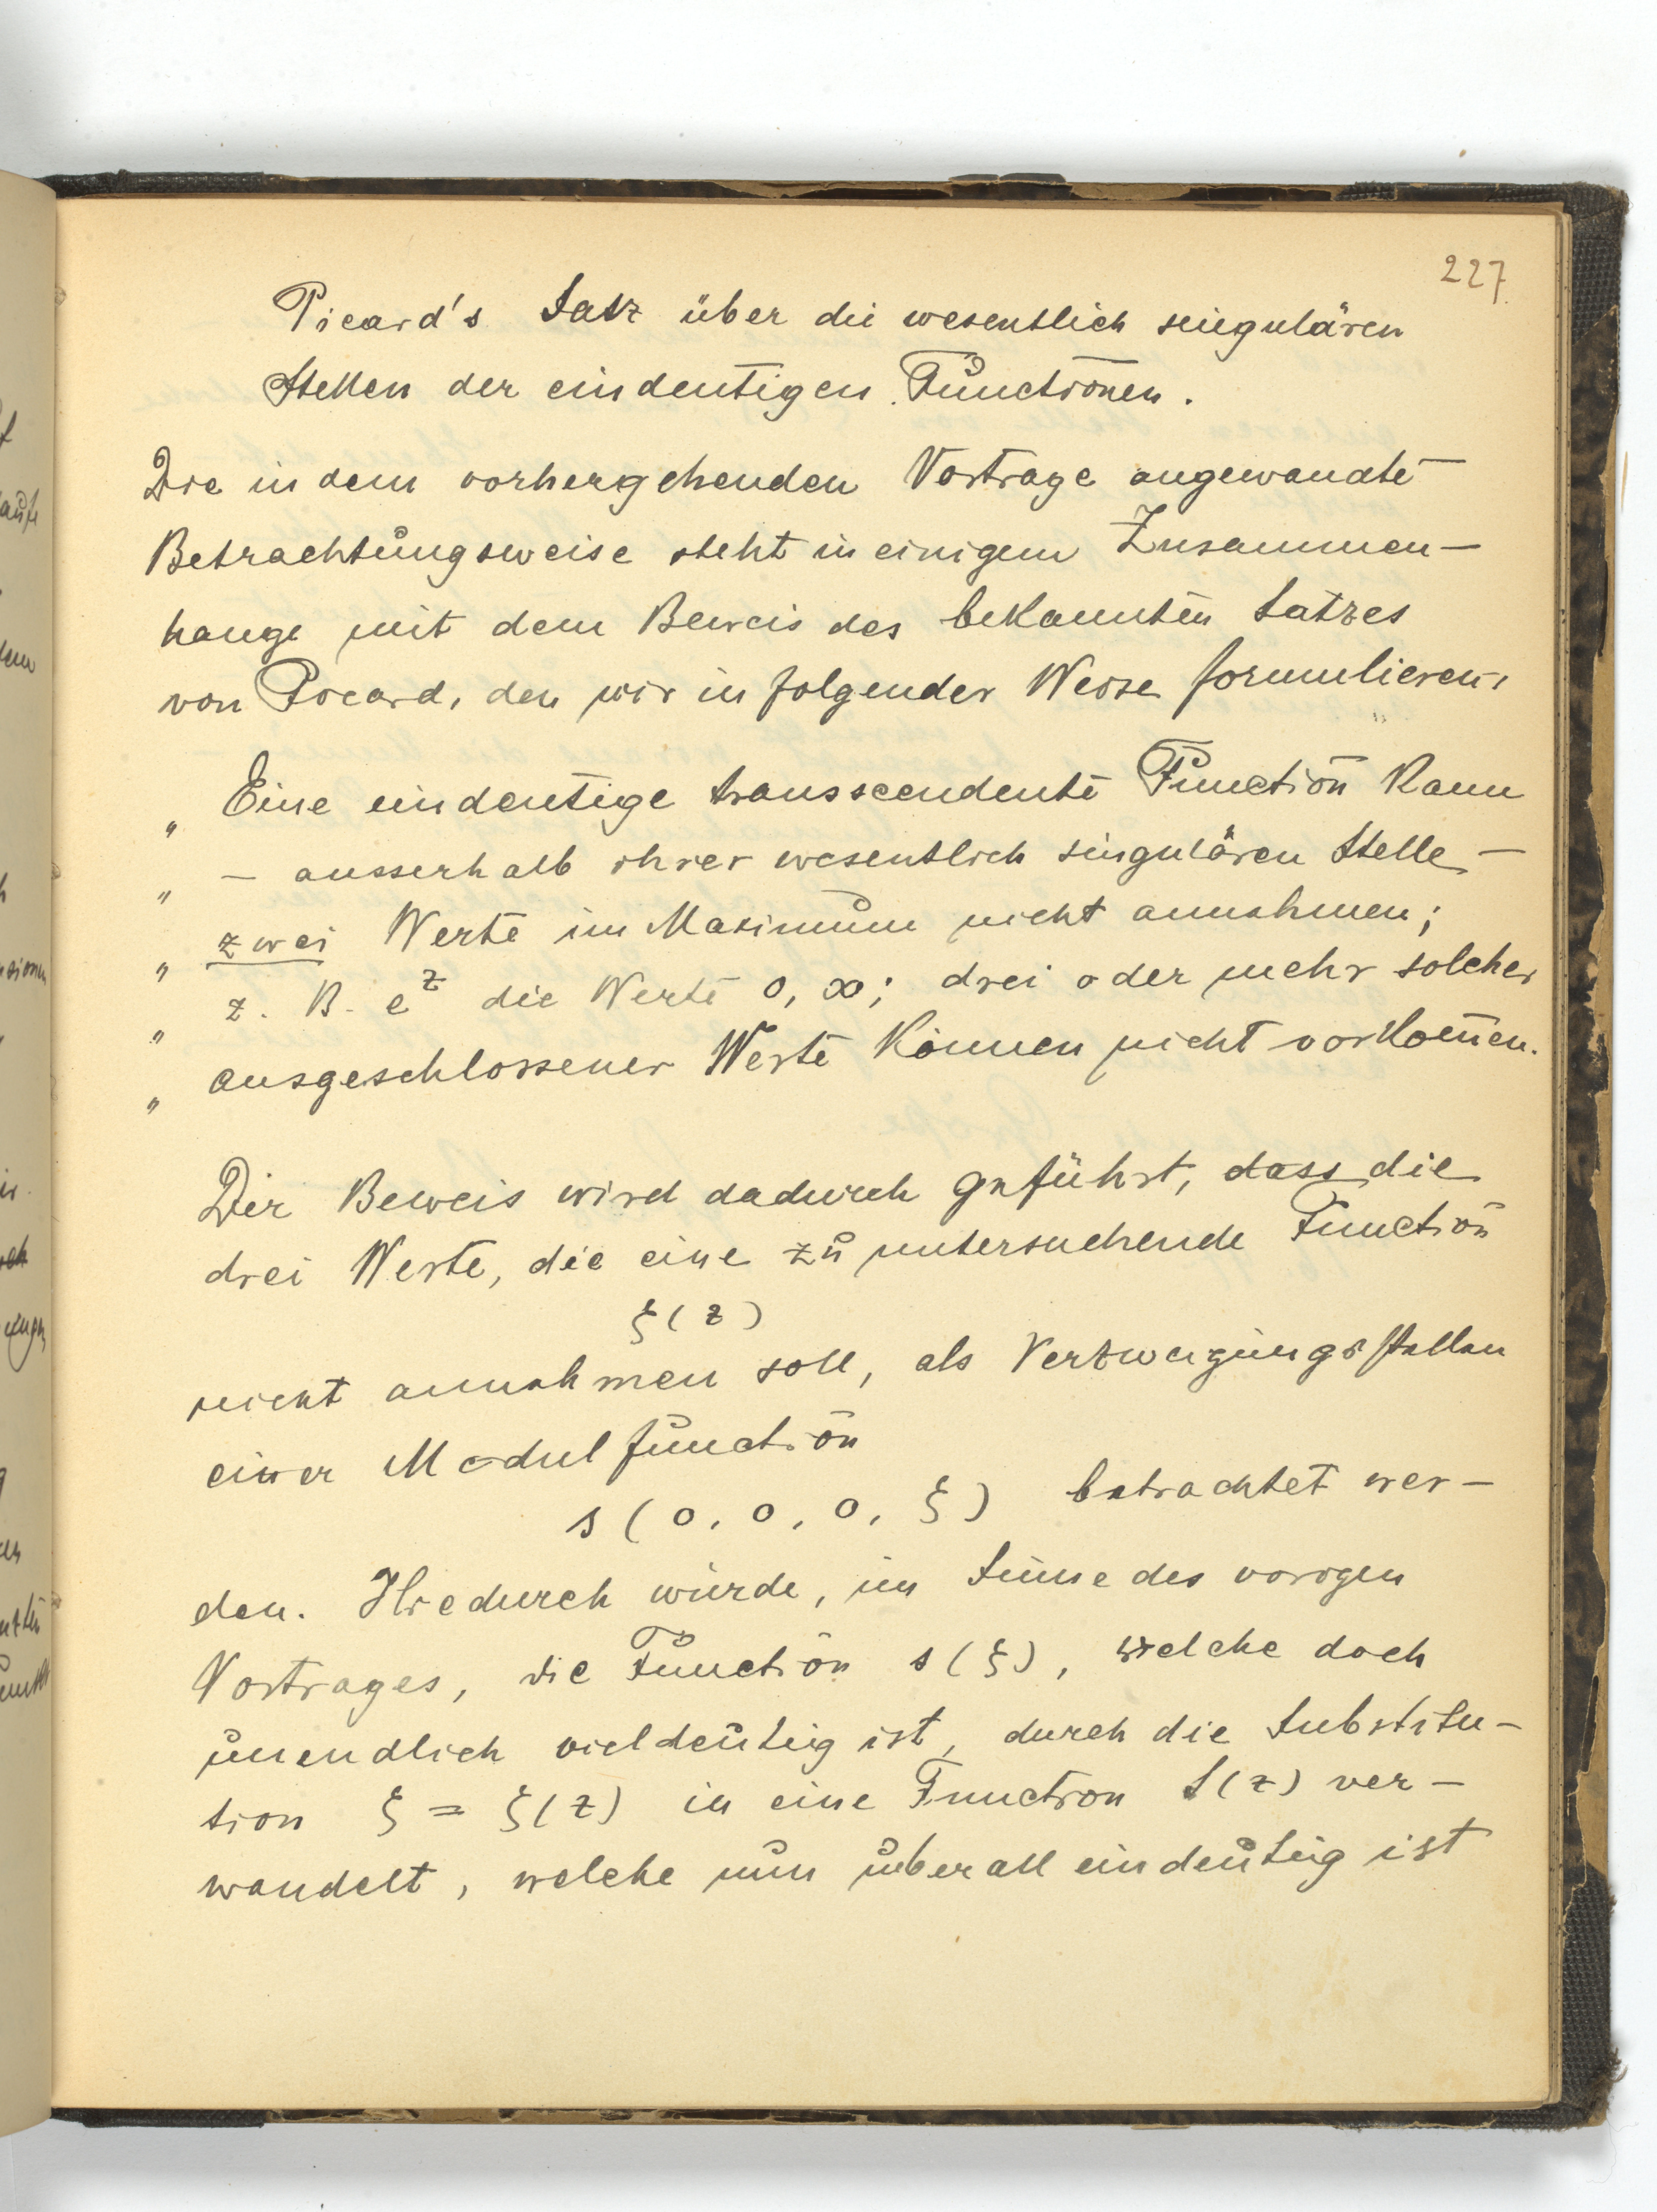 227.
Picard's Satz über die wesentlich singulären
Stellen der eindeutigen Functionen.
Die in dem vorhergehenden Vortrage angewandte
Betrachtungsweise steht in einigem Zusammen-
hange mit dem Beweis des bekannten Satzes
von Picard, den wir in folgender Weise formulieren:
„ Eine eindeutige transscendente Function kann
„ – ausserhalb ihrer wesentlich singulären Stelle –
„ zwei Werte im Maximum nicht annehmen;
„ z. B. e^z die Werte 0, ∞; drei oder mehr solcher
„ ausgeschlossener Werte können nicht vorkom̄en.
Der Beweis wird dadurch geführt, dass die
drei Werte, die eine zu untersuchende Function
ξ(z)
nicht annehmen soll, als Verzweigungsstellen
einer Modulfunction
s(0, 0, 0, ξ) betrachtet wer-
den. Hiedurch würde, im Sinne des vorigen
Vortrages, die Function s(ξ), welche doch
unendlich vieldeutig ist, durch die Substitu-
tion ξ = ξ(z) in eine Function S(z) ver-
wandelt, welche nun überall eindeutig ist